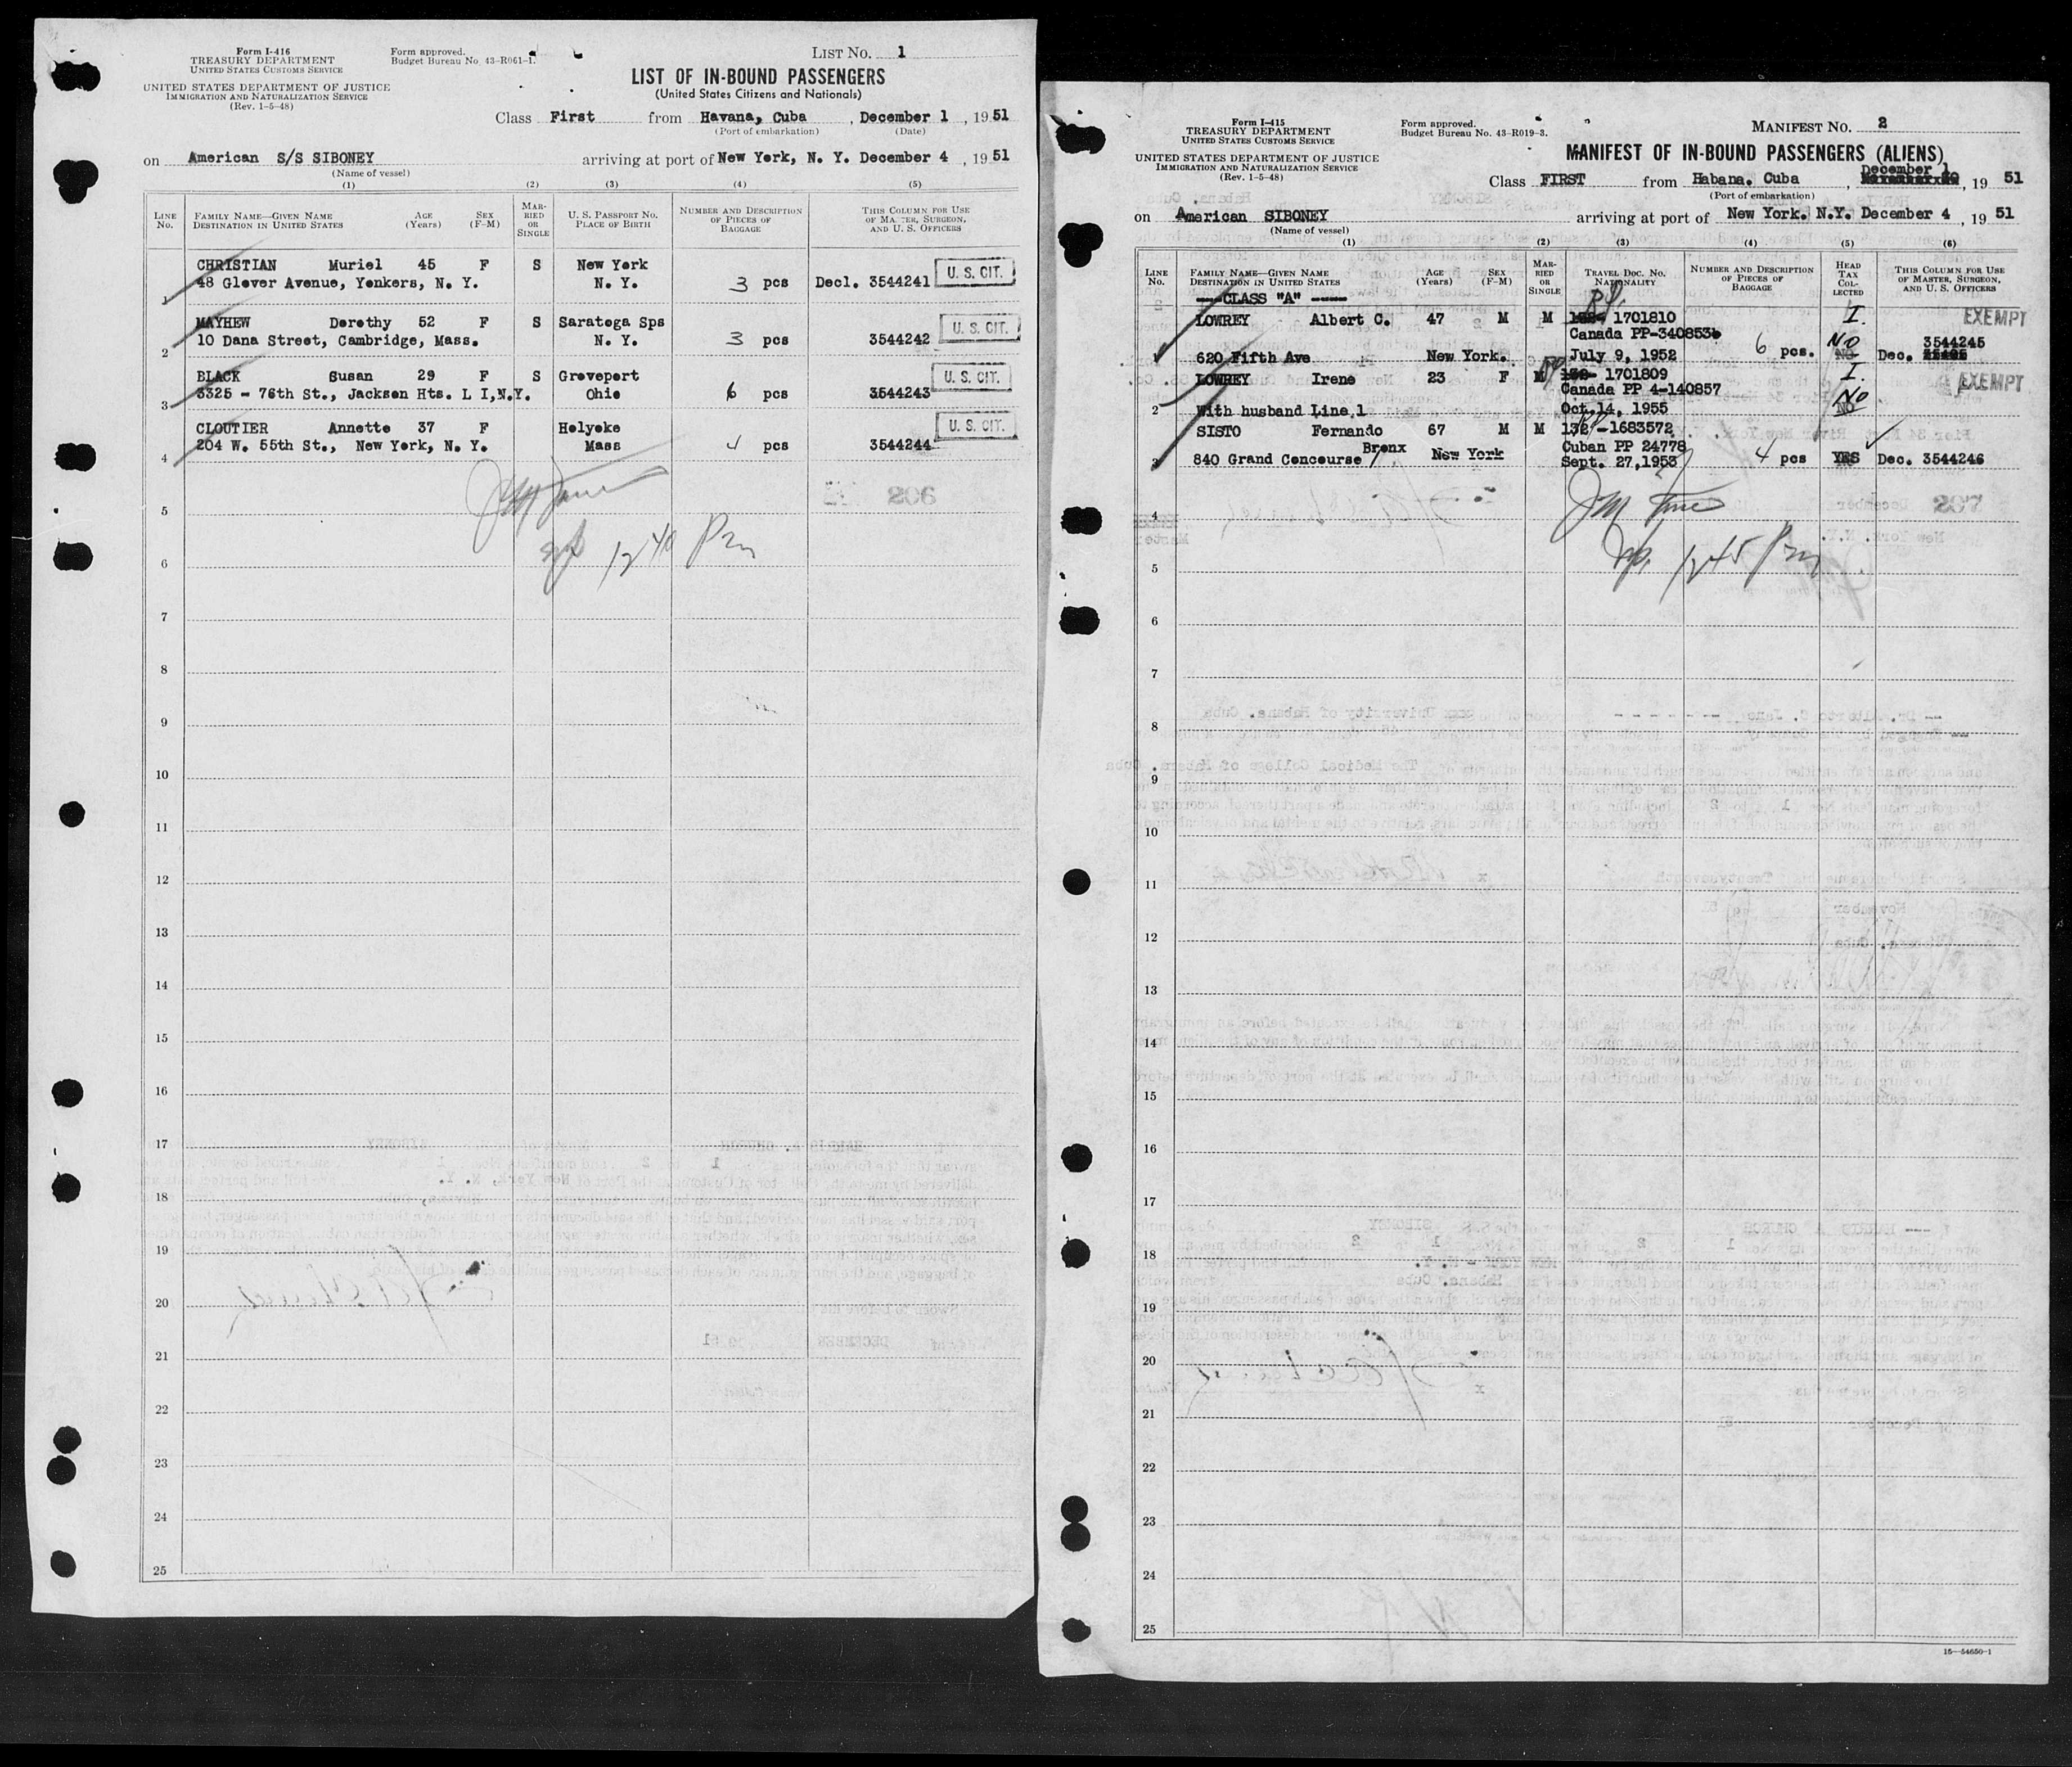 Form I-416
TREASURY DEPARTMENT
UNITED STATES CUSTOMS SERVICE
UNITED STATES DEPARTMENT OF JUSTICE
IMMIGRATION AND NATURALIZATION SERVICE
(Rev. 1-5-48)
Form approved.
Budget Bureau No. 43-R061-1.
LIST No. 1
LIST OF IN-BOUND PASSENGERS
(United States Citizens and Nationals)
Class First from Havana, Cuba , December 1 , 1951
(Port of embarkation) (Date)
on American S/S SIBONEY arriving at port of New York, N. Y. December 4 , 1951
(Name of vessel)
(1) (2) (3) (4) (5)
LINE No. FAMILY NAME—GIVEN NAME DESTINATION IN UNITED STATES AGE (Years) SEX (F-M) MARRIED OR SINGLE U. S. PASSPORT No. PLACE OF BIRTH NUMBER AND DESCRIPTION OF PIECES OF BAGGAGE THIS COLUMN FOR USE OF MASTER, SURGEON, AND U. S. OFFICERS
CHRISTIAN Muriel 45 F S New York
1 48 Glover Avenue, Yonkers, N. Y. N. Y. 3 pcs Decl. 3544241 U. S. CIT.
MAYHEW Dorothy 52 F S Saratoga Sps
2 10 Dana Street, Cambridge, Mass. N. Y. 3 pcs 3544242 U. S. CIT.
BLACK Susan 29 F S Groveport
3 3325 - 76th St., Jackson Hts. L I,N.Y. Ohio 6 pcs 3544243 U. S. CIT.
CLOUTIER Annette 37 F Holyoke
4 204 W. 55th St., New York, N. Y. Mass 4 pcs 3544244 U. S. CIT.
5
1240 Pm
6
7
8
9
10
11
12
13
14
15
16
17
18
19
20
21
22
23
24
25
Form I-415
TREASURY DEPARTMENT
UNITED STATES CUSTOMS SERVICE
UNITED STATES DEPARTMENT OF JUSTICE
IMMIGRATION AND NATURALIZATION SERVICE
(Rev. 1-5-48)
Form approved.
Budget Bureau No. 43-R019-3.
MANIFEST No. 2
MANIFEST OF IN-BOUND PASSENGERS (ALIENS)
Class FIRST from Habana. Cuba , December 1 , 19 51
(Port of embarkation)
on American SIBONEY arriving at port of New York. N.Y. December 4 , 19 51
(Name of vessel)
(1) (2) (3) (4) (5) (6)
LINE No. FAMILY NAME—GIVEN NAME DESTINATION IN UNITED STATES AGE (Years) SEX (F-M) MARRIED OR SINGLE TRAVEL DOC. No. NATIONALITY NUMBER AND DESCRIPTION OF PIECES OF BAGGAGE HEAD TAX COLLECTED THIS COLUMN FOR USE OF MASTER, SURGEON, AND U. S. OFFICERS
CLASS "A"
LOWREY Albert C. 47 M M 1701810 I. EXEMPT
Canada PP-340853b NO 3544245
1 620 Fifth Ave New York. July 9, 1952 6 pcs. NO Dec.
LOWREY Irene 23 F M 1701809 I. EXEMPT
Canada PP 4-140857 No
2 With husband Line 1 Oct.14, 1955 NO
SISTO Fernando 67 M M 132 -1683572
Bronx Cuban PP 24778
3 840 Grand Concourse New York Sept. 27,1953 4 pcs YES Dec. 3544246
4
1245 Pm
5
6
7
8
9
10
11
12
13
14
15
16
17
18
19
20
21
22
23
24
25
16—54650-1